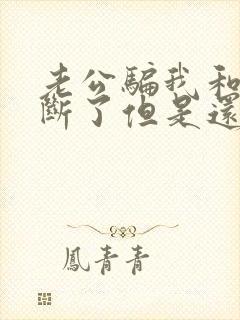 老公騙我和
斷了但是還
鳳青青